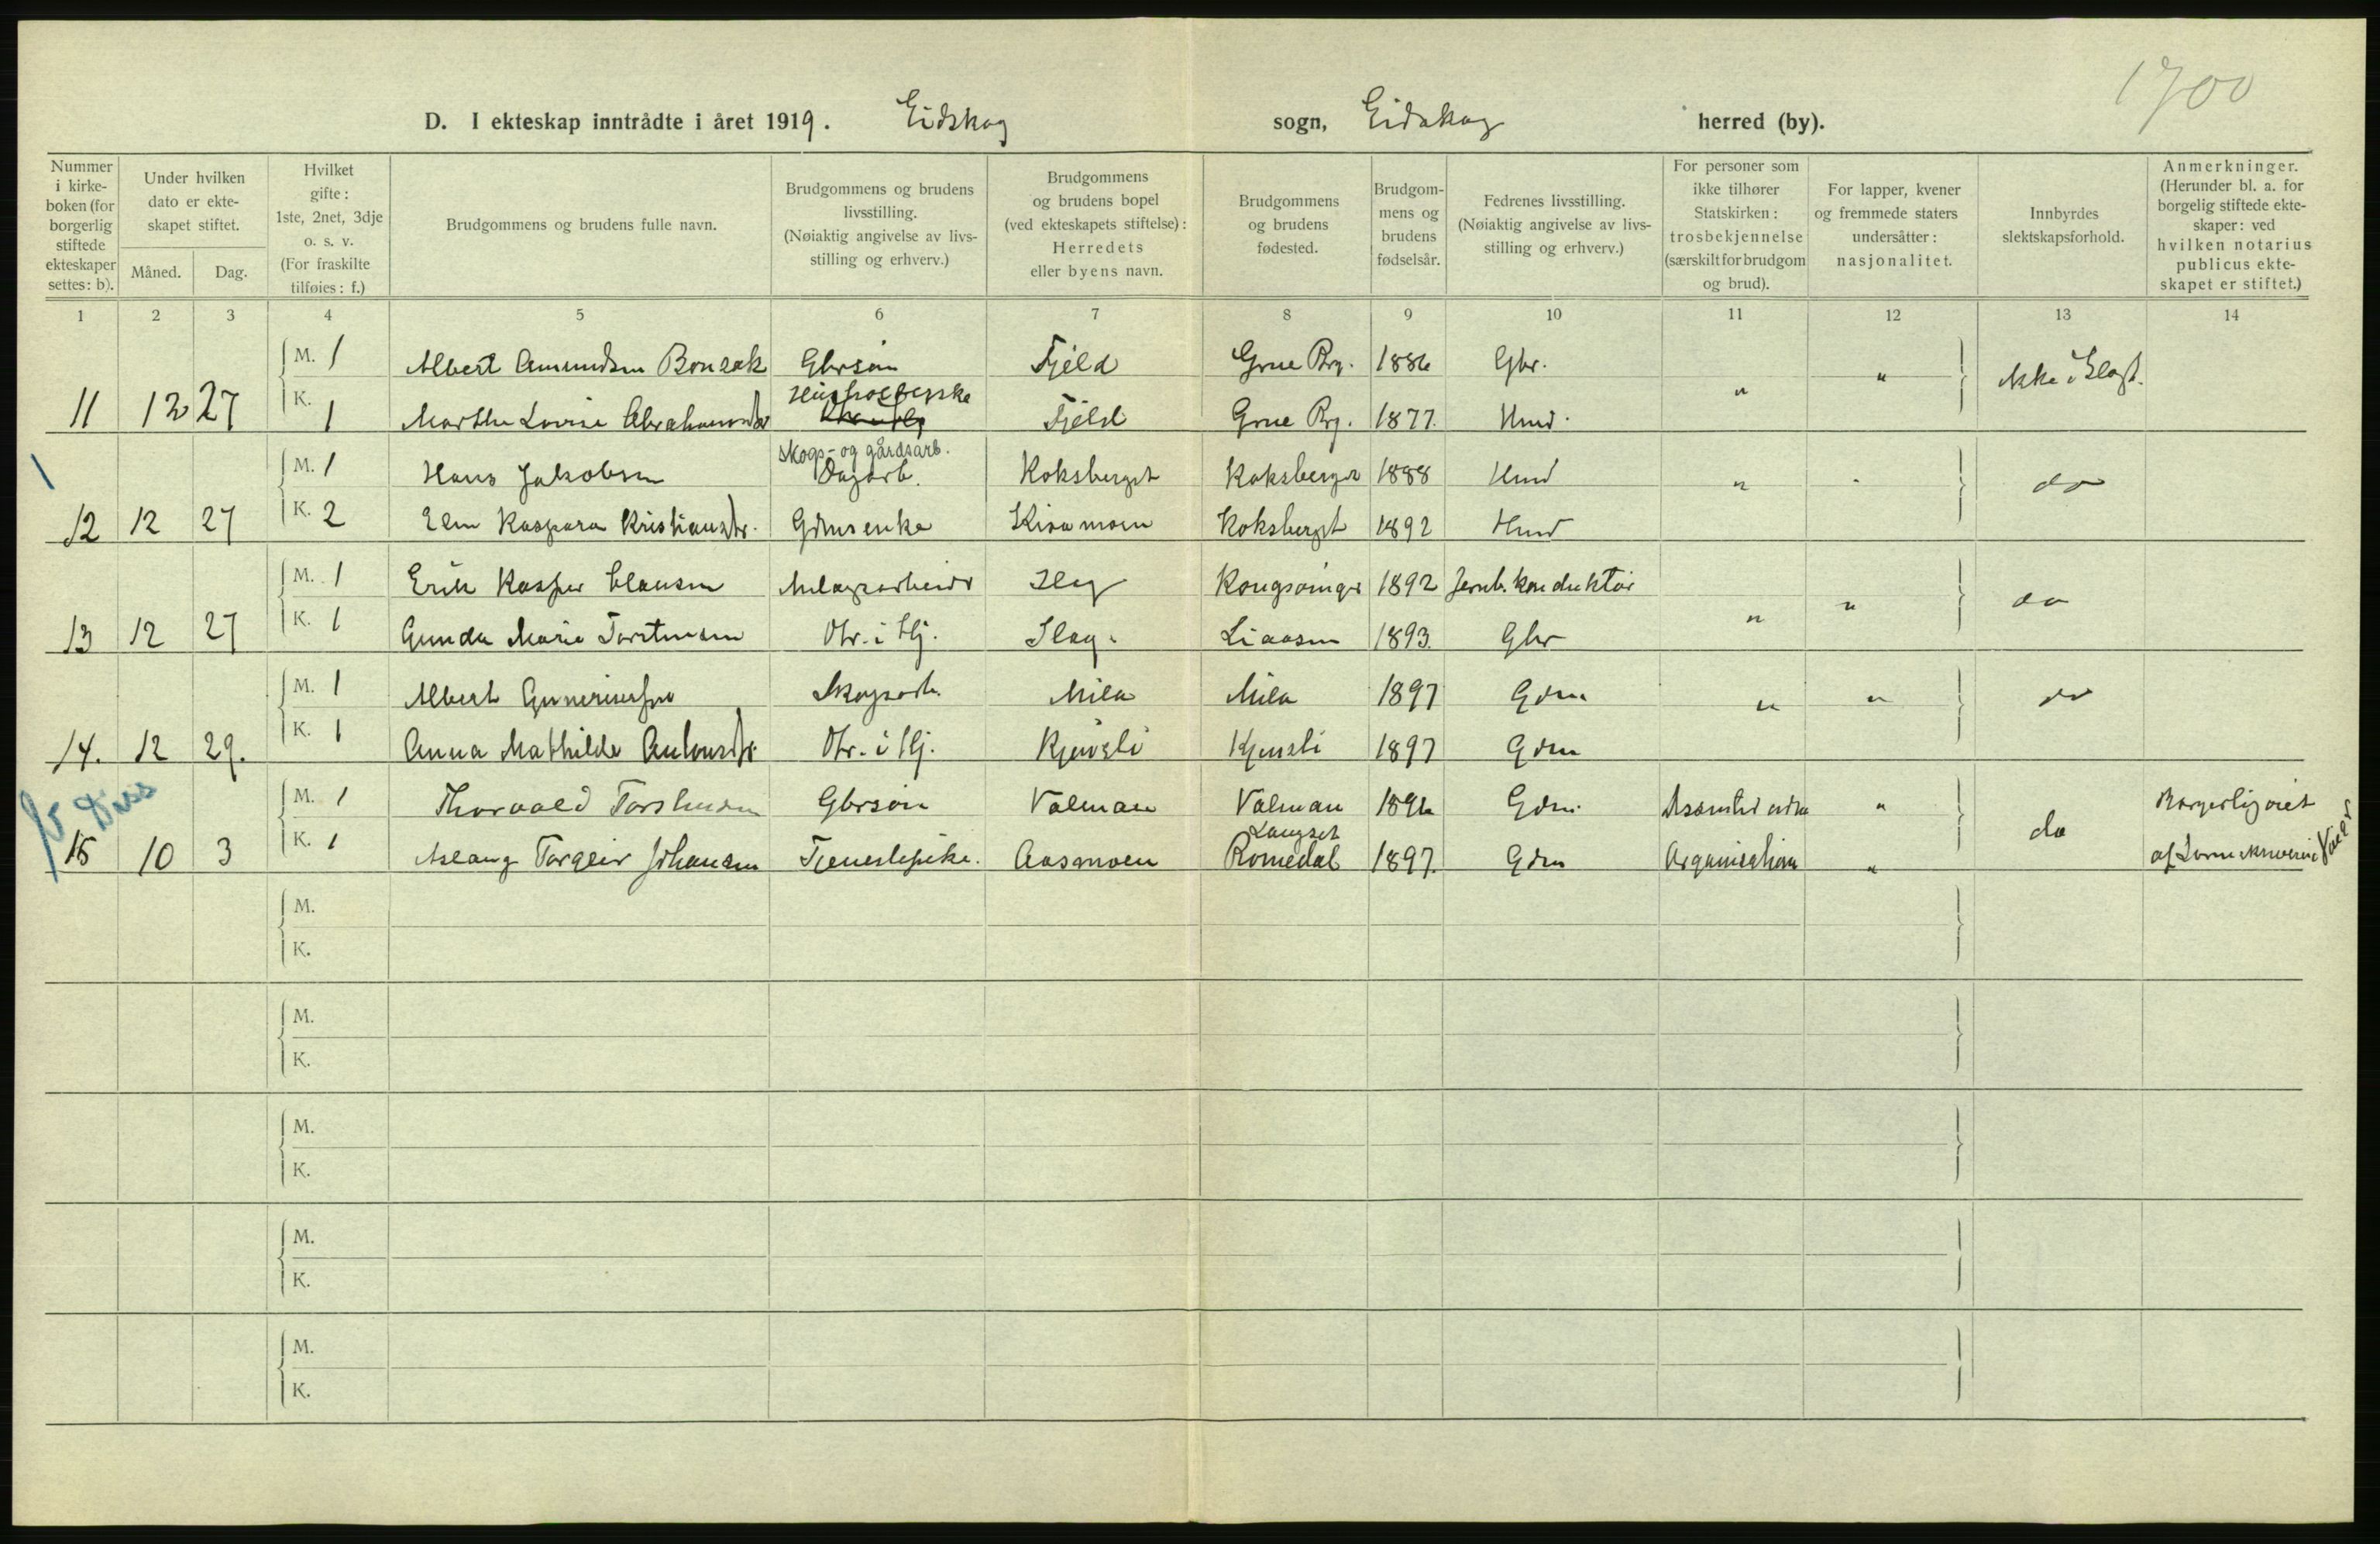 1700
D. I ekteskap inntrådte i året 1919. Eidskog sogn, Eidskog herred (by).
Nummer i kirkeboken (for borgerlig stiftede ekteskaper settes: b).
Under hvilken dato er ekteskapet stiftet.
Måned. Dag.
Hvilket gifte: 1ste, 2net, 3dje o. s. v. (For fraskilte tilføies: f.)
Brudgommens og brudens fulle navn.
Brudgommens og brudens livsstilling. (Nøiaktig angivelse av livsstilling og erhverv.)
Brudgommens og brudens bopel (ved ekteskapets stiftelse): Herredets eller byens navn.
Brudgommens og brudens fødested.
Brudgommens og brudens fødselsår.
Fedrenes livsstilling. (Nøiaktig angivelse av livsstilling og erhverv.)
For personer som ikke tilhører Statskirken: trosbekjennelse (særskilt for brudgom og brud).
For lapper, kvener og fremmede staters undersåtter: nasjonalitet.
Innbyrdes slektskapsforhold.
Anmerkninger. (Herunder bl. a. for borgelig stiftede ekteskaper: ved hvilken notarius publicus ekteskapet er stiftet.)
1 2 3 4 5 6 7 8 9 10 11 12 13 14
M. 1 Albert Amundsen Gbrsøn Fjeld Grue Prg. 1886 Gbr. " " ikke i Slegt.
Husholderske
11 12 27 K. 1 Marthe Lovise Abrahamsdtr Fjeld Grue Prg. 1877. Hmd.
skogs- og gårdsarb.
M. 1 Hans Jakobsen Dagarb. Koksberget Koksberget 1888 Hmd " do
12 12 27 K. 2 Elen Kaspara Kristiansdtr. Gdmsenke Koksberget 1892 Hmd
M. 1 Erik Kasper Clausen Skog Kongsvinger 1892 Jernb. konduktør " " do
13 12 27 K. 1 Gunda Marie Torstensen Dtr. i Hj. Skog. Liaasen 1893. Gbr
M. 1 Albert Gunerius Skogsarb. Mila Mila 1897 Gdm " " do
14. 12 29. K. 1 Anna Mathilde Antonsdtr. Dtr. i Hj. Kjensli Kjensli 1897 Gdm
Diss
M. 1 Thorvald Torstensen Gbrsøn Valman Valman 1896 Gdm. " do Borgerlig viet
Langset
15 10 3 K. 1 Aslaug Torgeir Johansen Tjenestepike. Aasmoen Romedal 1897. Gdm Organisation " af Sorenskriveren i Vaaler
M.
K.
M.
K.
M.
K.
M.
K.
M.
K.